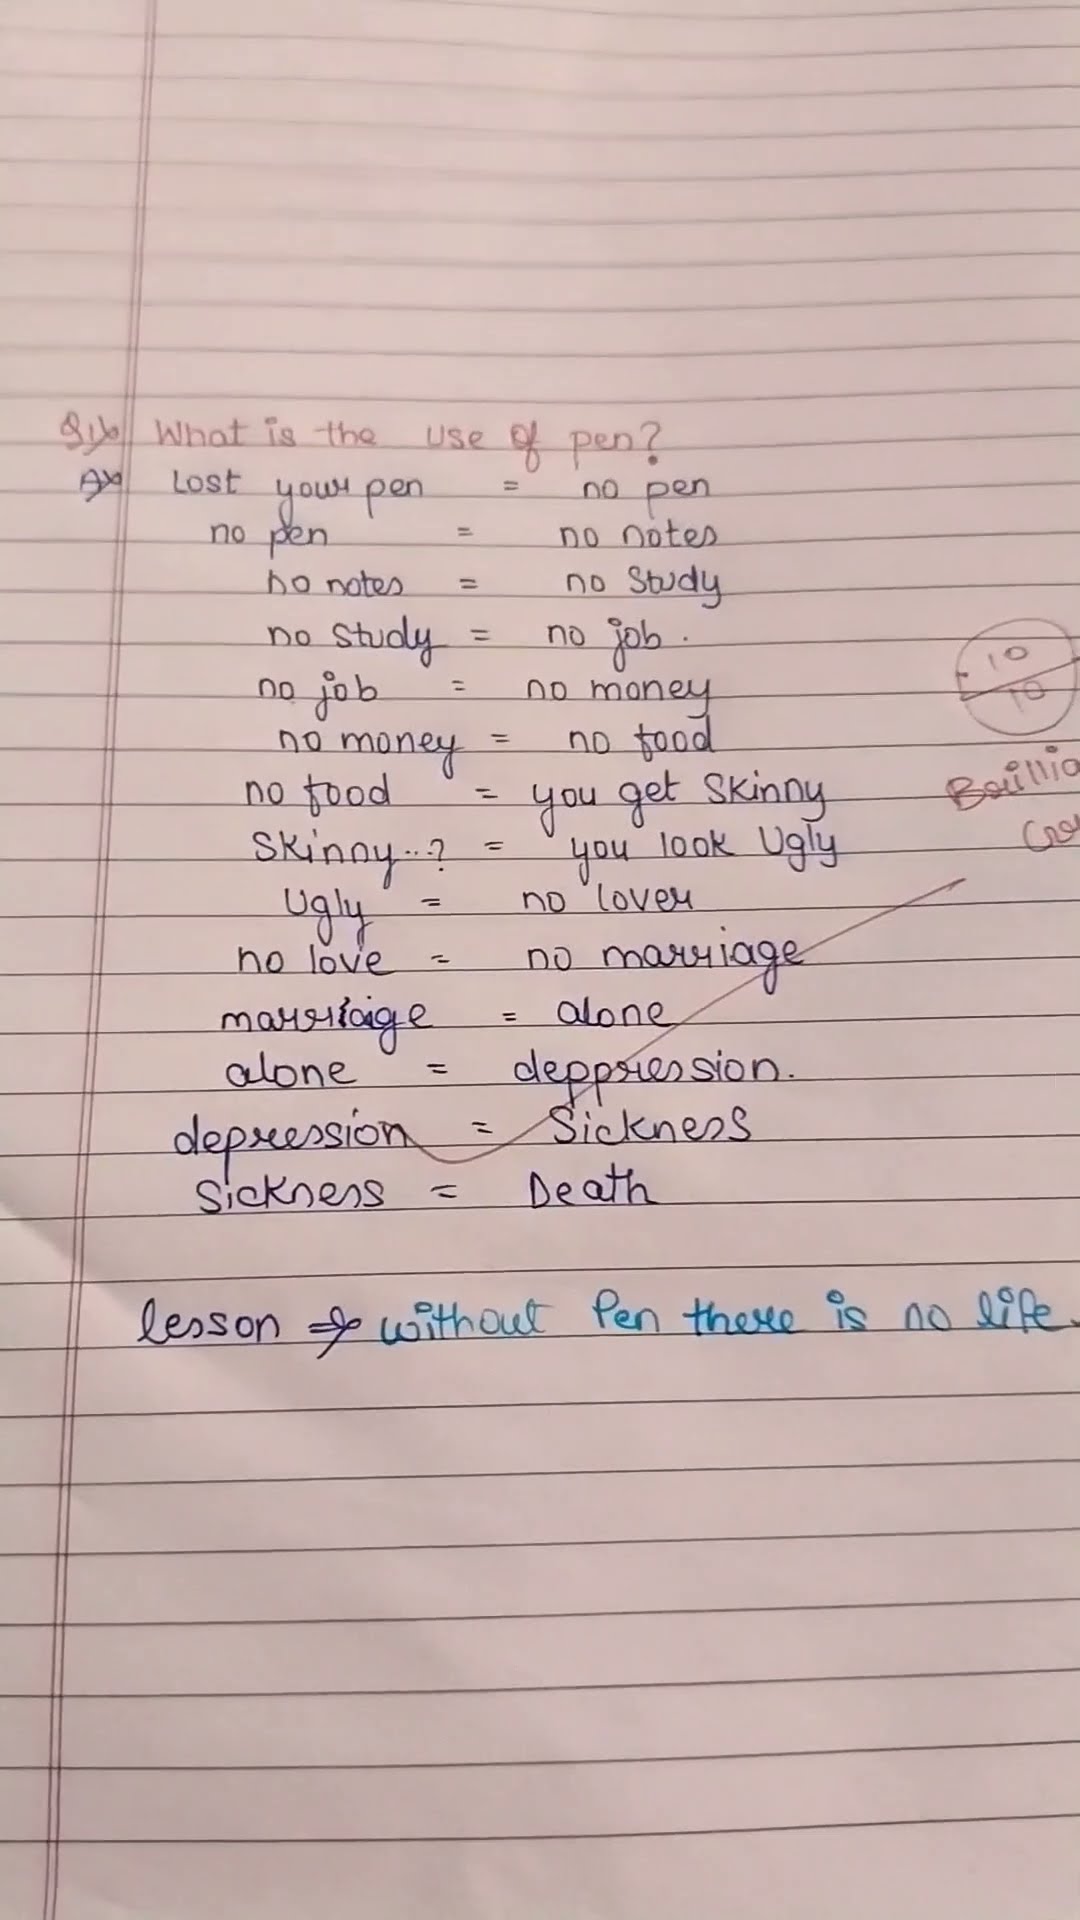 Q1) What is the use of pen?
A) Lost your pen = no pen
no pen = no notes
no notes = no study
no study = no job.
no job = no money
no money = no food
no food = you get skinny
Skinny..? = you look Ugly
Ugly = no lover
no love = no marriage
marriaige = alone
alone = deppression.
depression = Sickness
Sickness = Death
lesson → without Pen there is no life.
10
10